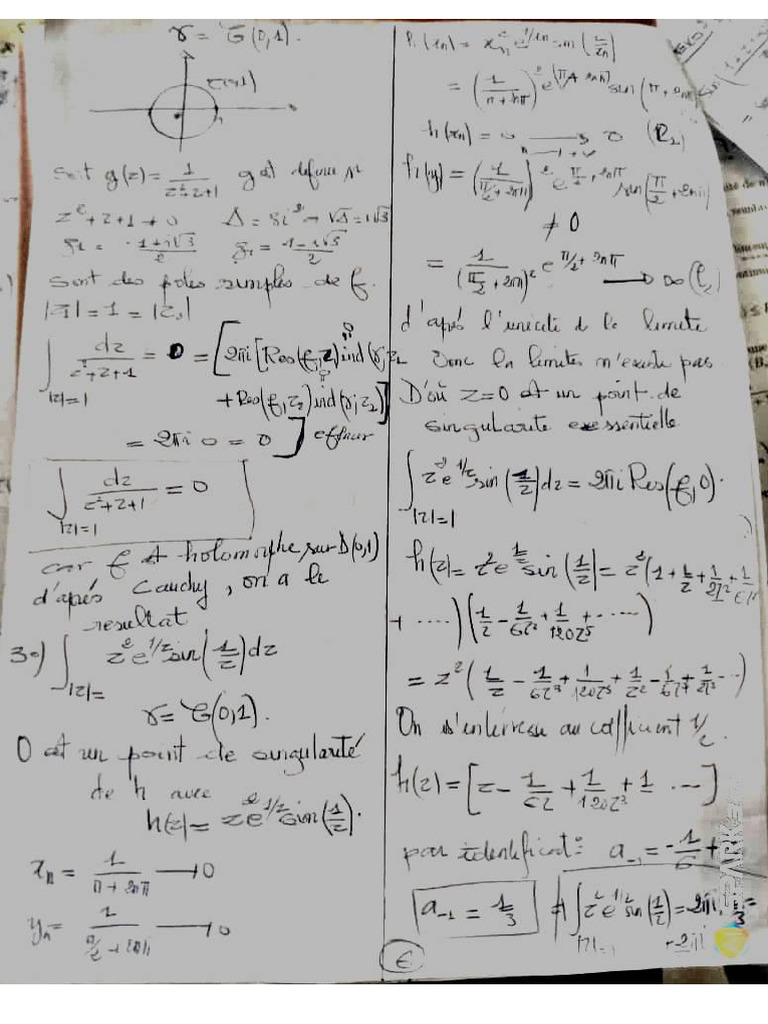 γ = C(0,1).
C(0,1)
soit g(z) = 1/(z²+z+1) g est définie si
z²+z+1 ≠ 0 Δ = 3i² → √Δ = i√3
z₁ = (-1+i√3)/2 z₂ = (-1-i√3)/2
sont des poles simples de f.
|z₁| = 1 = |z₂|
∫_{|z|=1} dz/(z²+z+1) = 0 = [2πi [Res(f,z₁) ind(γ,z₁)
+ Res(f,z₂) ind(γ,z₂)]
= 2πi 0 = 0 ] erreur
∫_{|z|=1} dz/(z²+z+1) = 0
car f est holomorphe sur D(0,1)
d'après Cauchy, on a le
resultat
3°) ∫_{|z|=} z² e^{1/z} sin(1/z) dz
γ = C(0,1).
0 est un point de singularité
de h avec
h(z) = z² e^{1/z} sin(1/z).
xₙ = 1/(π+2nπ) → 0
yₙ = 1/(π/2+2nπ) → 0
h(xₙ) = xₙ² e^{1/xₙ} sin(1/xₙ)
= (1/(π+2nπ))² e^{(π+2nπ)} sin(π+2nπ
h(xₙ) = 0 → 0 (l₁)
n → +∞
h(y) = (1/(π/2+2πn))² e^{π/2+2nπ} sin(π/2+2nπ)
≠ 0
= 1/(π/2+2πn)² e^{π/2+2nπ} → ∞ (l₂)
d'après l'unicité de la limite
Donc la limite n'existe pas
D'où z=0 est un point de
singularité essentielle
∫_{|z|=1} z² e^{1/z} sin(1/z) dz = 2πi Res(f,0).
h(z) = z² e^{1/z} sin(1/z) = z² (1 + 1/z + 1/2z² + 1/6z³
+ .....) (1/z - 1/6z³ + 1/120z⁵ + .....)
= z² (1/z - 1/6z³ + 1/120z⁵ + 1/z² - 1/6z⁴ + 1/2z³ ...)
On s'intéresse au coefficient 1/z.
h(z) = [z - 1/6z + 1/120z³ + 1 ...]
par identificat: a₋₁ = -1/6 +
a₋₁ = 1/3 ⇒ ∫_{|z|=1} z² e^{1/z} sin(1/z) = 2πi
6